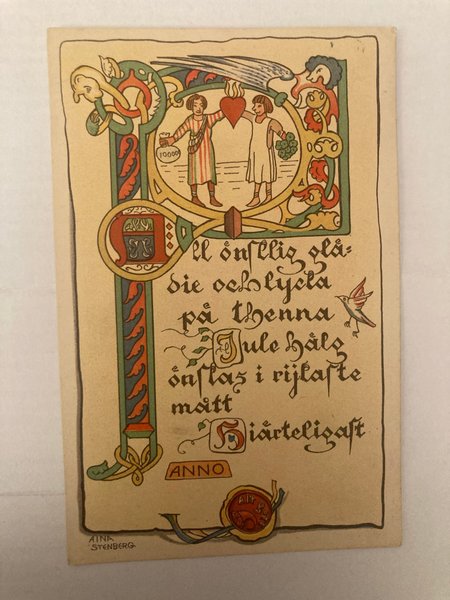 10000
All önsklig glä=
die och lycka
på thenna
Jule hälg
önskas i rijkaste
mått
Hiärteligast
ANNO
AINA
STENBERG